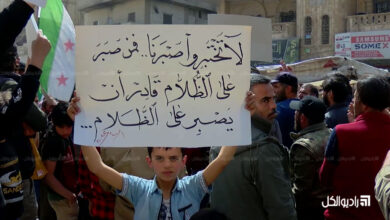 لا تختبروا صبرنا.. فمن صبر
على الظلام قادر أن
يصبر على الظلام...
SAMSUNG
SOME
راديو الكل